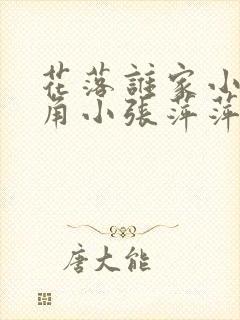 花落誰家小
角小張萍萍
唐大能